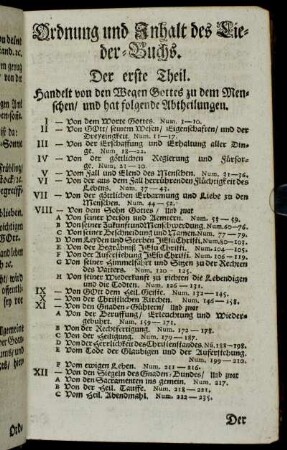 Ordnung und Inhalt des Lie-
der-Buchs.
Der erste Theil.
Handelt von den Wegen Gottes zu dem Men-
schen/ und hat folgende Abtheilungen.
I — Von dem Worte Gottes. Num. 1—10.
II — Von GOtt/ seinem Wesen/ Eigenschaften/ und der
Dreyeinigkeit. Num. 11—17.
III — Von der Erschaffung und Erhaltung aller Din-
ge. Num 18—22.
IV — Von der göttlichen Regierung und Fürsor-
ge. Num. 23—30.
V — Vom Fall und Elend des Menschen. Num. 31—36.
VI — Von der aus dem Fall herrührenden Flüchtigkeit des
Lebens. Num. 37—43.
VII — Von der göttlichen Erbarmung und Liebe zu den
Menschen. Num. 44—52.
VIII — Von dem Sohn Gottes/ und zwar
A Von seiner Person und Aemtern. Num. 53—59.
B Von seiner Zukunft und Menschwerdung. Num. 60—76.
C Von seiner Beschneidung und Namen. Num. 77—79.
D Vom Leyden und Sterben JEsu Christi. Num. 80—103.
E Von der Begräbnuß JEsu Christi. Num. 104—105.
F Von der Auferstehung JEsu Christi. Num. 106—119.
G Von seiner Himmelfahrt und Sitzen zu der Rechten
des Vatters. Num. 120—125.
H Von seiner Wiederkunft zu richten die Lebendigen
und die Todten. Num. 126—131.
IX — Von GOtt dem Heil. Geiste. Num. 132—145.
X — Von der Christlichen Kirchen. Num. 146—158.
XI — Von den Gnaden-Gütheren/ und zwar
A Von der Beruffung/ Erleuchtung und Wieder-
geburt. Num. 159—171.
B Von der Rechtfertigung. Num. 172—178.
C Von der Heiligung. Num. 179—187.
D Von der Herrlichkeit des Christenstandes. Nu. 188—198.
E Vom Tode der Glaubigen und der Auferstehung.
Num. 199—210.
F Vom ewigen Leben. Num. 211—216.
XII — Von den Siegeln des Gnaden-Bundes/ und zwar
A Von den Sacramenten ins gemein. Num. 217.
B Von der Heil. Tauffe. Num. 218—221.
C Vom Heil. Abendmahl. Num. 222—235.
Der